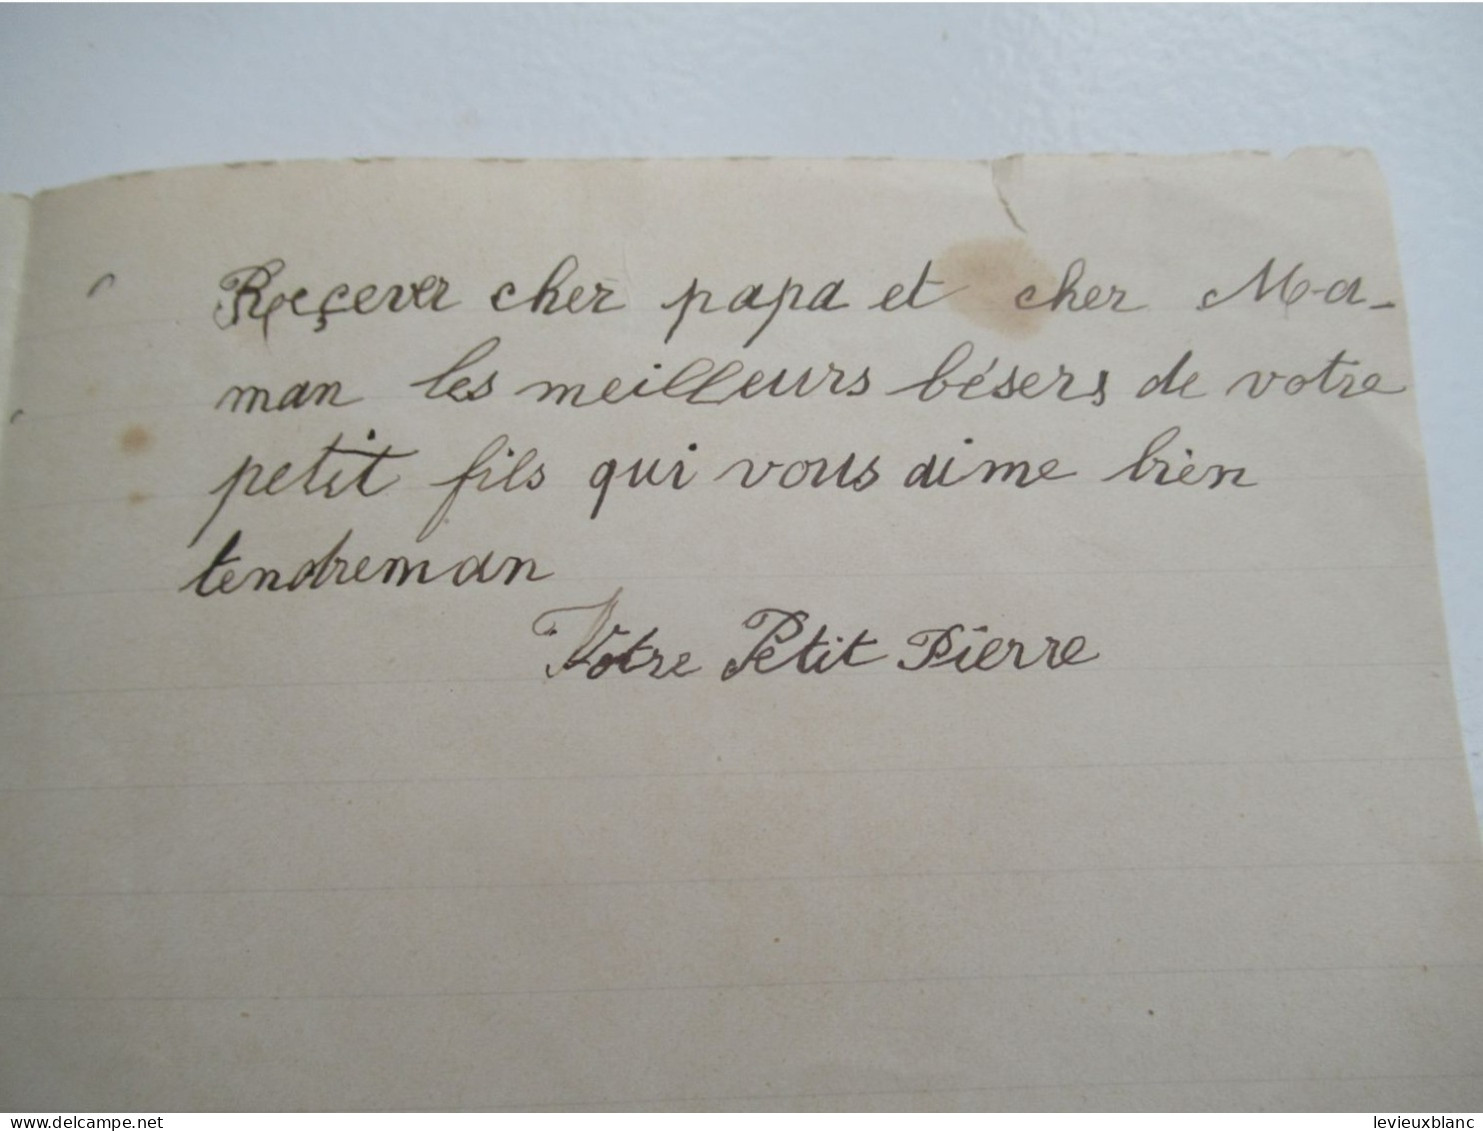 Reçever cher papa et cher Ma-
man les meilleurs bésers de votre
petit fils qui vous aime bien
tendreman
Votre Petit Pierre
levieuxblanc